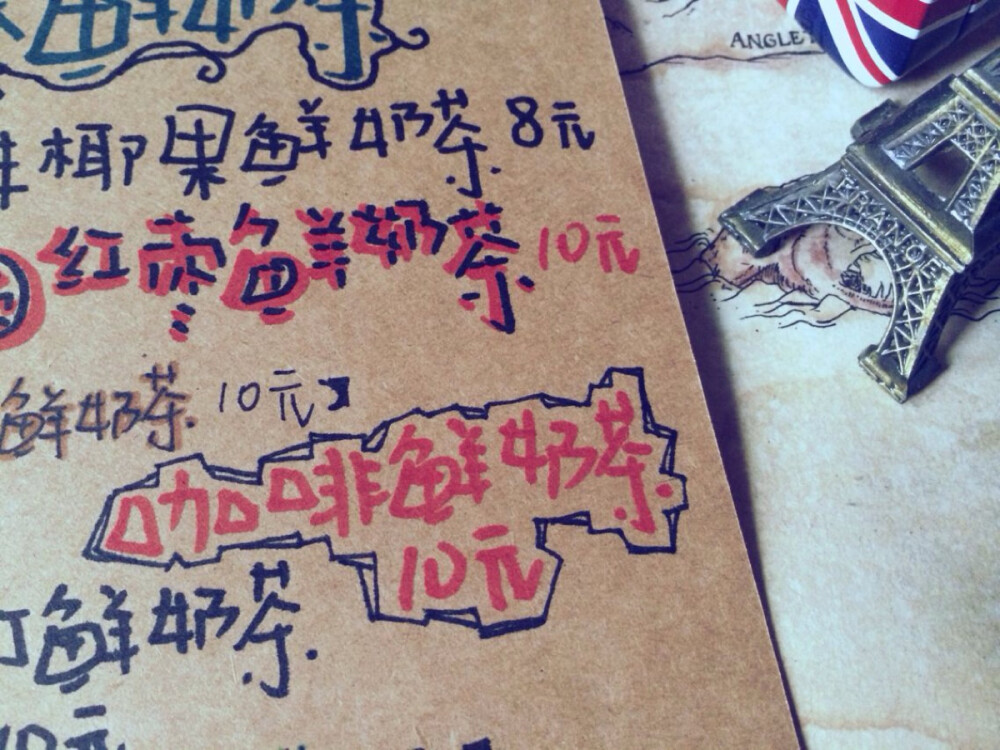 鲜奶茶
椰果鲜奶茶 8元
红枣鲜奶茶 10元
鲜奶茶 10元
咖啡鲜奶茶
10元
鲜奶茶
10元
ANGLE
FRANCE